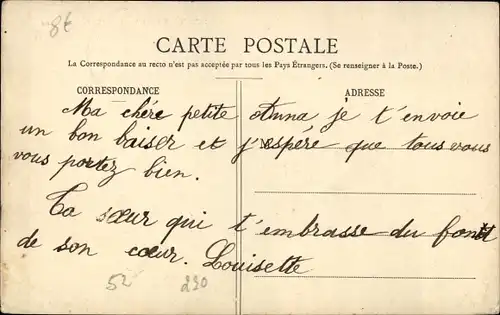 8€
CARTE POSTALE
La Correspondance au recto n'est pas acceptée par tous les Pays Étrangers. (Se renseigner à la Poste.)
CORRESPONDANCE
ADRESSE
Ma chére petite Anna je t'envoie
un bon baiser et j'éspére que tous vous
vous portez bien.
Ta sœur qui t'embrasse du fond
de son cœur. Louisette
52 220